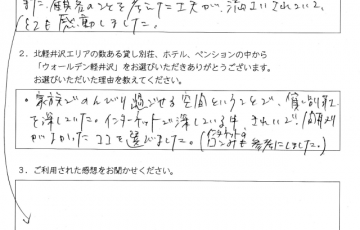 また、顧客のことを考えた工夫が、満エいされていて、
とても感動しました。
2．北軽井沢エリアの数ある貸し別荘、ホテル、ペンションの中から
「ウォールデン軽井沢」をお選びいただきありがとうございます。
お選びいただいた理由を教えてください。
・家族でのんびり過ごせる空間ということで、貸し別荘
を探していた。インターネットで探している中、きれいで、
がよかったココを選びました。（も参考にしました。）
3．ご利用された感想をお聞かせください。